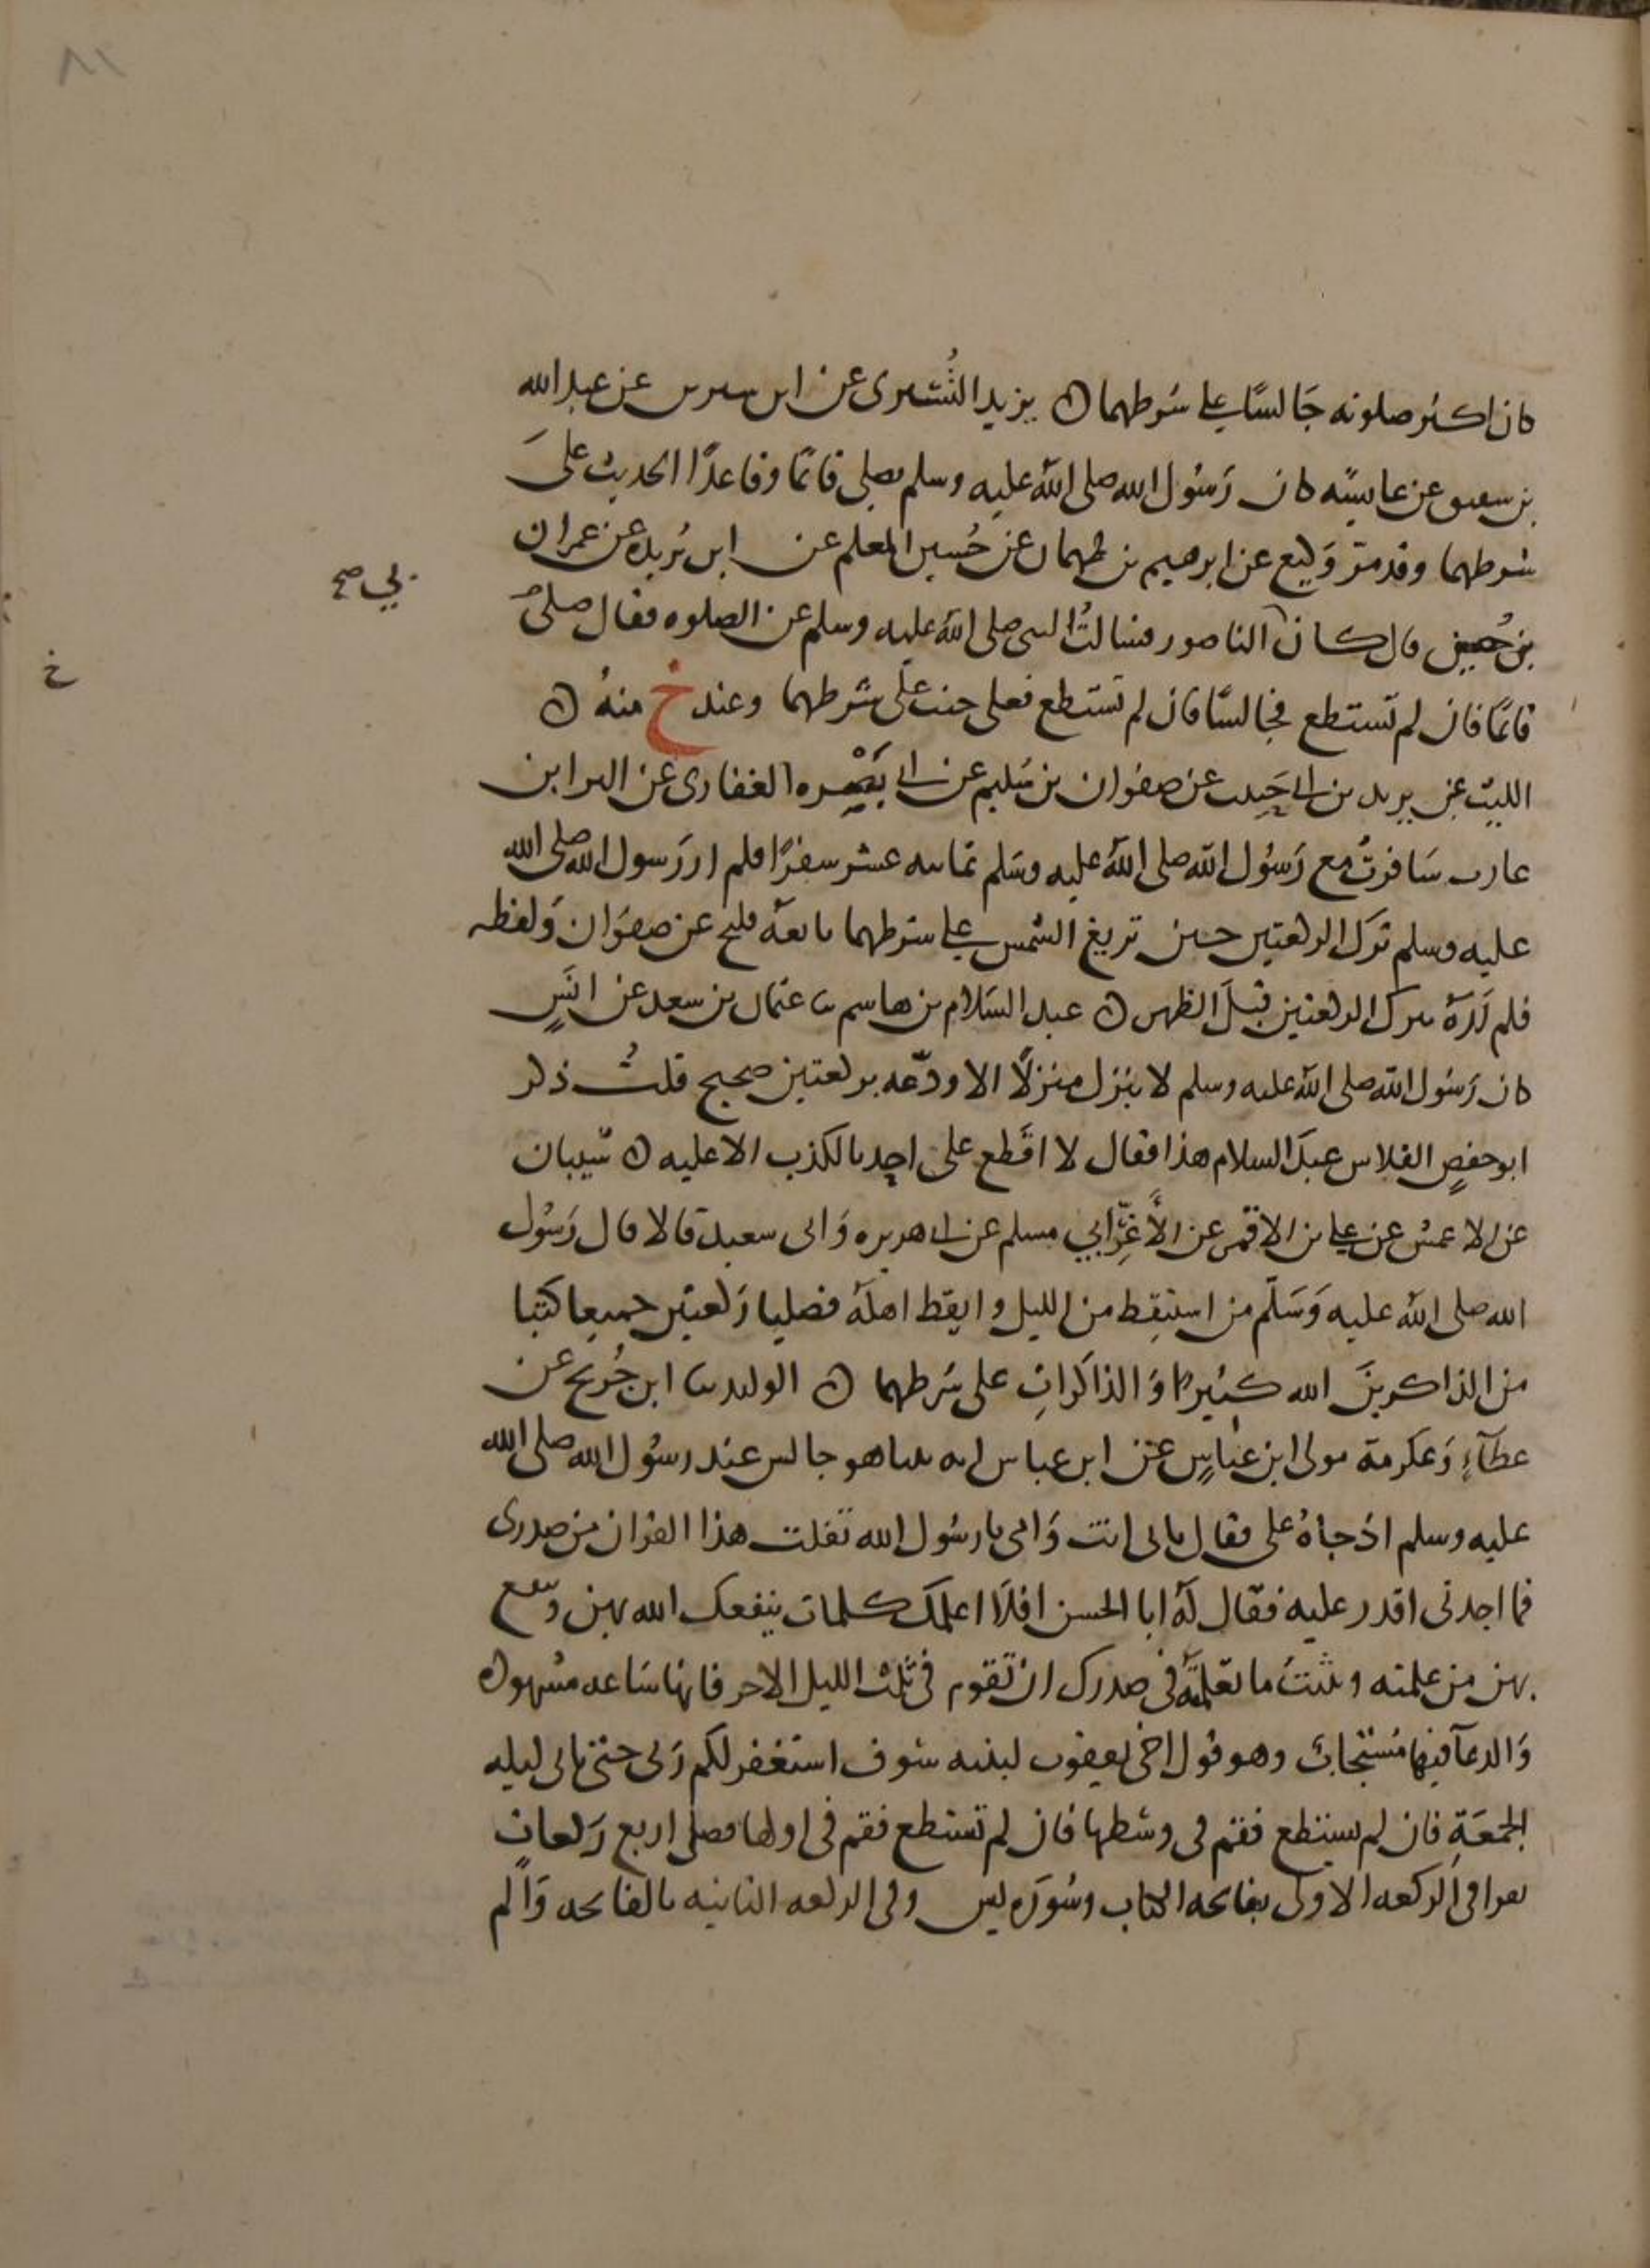 ٨١
كان اكثر صلوته جَالسًا على شرطهما ه يزيد التُسْتَرى عن ابن سيرين عن عبد الله
بن شقيق عن عايشه كان رَسُول الله صلى الله عليه وسلم يصلى قائمًا وقاعدًا الحديث على
شرطهما وقد مرّ وَكيع عن ابرهيم بن طهمان عن حُسين المعلم عن ابن بُريده عن عمران
بن حُصين قال كان الناصور فسالتُ النبى صلى الله عليه وسلم عن الصلوه فقال صلى
بي صح
قائمًا فان لم تستطع فجالسًا فان لم تستطع فعلى جنب على شرطهما وعند خ منهُ ه
خ
الليث عن يزيد بن ابى حَبِيب عن صفوان بن سُليم عن ابى بَصْره الغفارى عن البرا بن
عازب سَافرتُ مع رَسُول الله صلى الله عليه وسَلم ثمانيه عشر سفرًا فلم ار رَسول الله صلى الله
عليه وسلم ترك الركعتين حين تزيغ الشمس على شرطهما تابعه فليح عن صفوَان وَلفظه
فلم نَرَهُ يترك الركعتين قبلَ الظهر ه عبد السَلام بن هاشم ثنا عثمان بن سعد عن انَسٍ
كان رَسُول الله صلى الله عليه وسلم لا ينزل منزلًا الا ودّعه بركعتين صحيح قلتُ ذكر
ابو حفصٍ الفلاس عبدَ السلام هذا فقال لا اقطع على احدٍ بالكذب الا عليه ه شيبان
عن الاعمش عن على بن الاقمر عن الأَغَرِّ ابي مسلم عن ابى هريره وَابى سعيد قالا قال رَسُول
الله صلى الله عليه وَسَلّم من استيقظ من الليل وايقظ اهلَهُ فصليا رَكعتين جميعا كتبا
من الذاكرينَ الله كثيرا وَالذاكراتِ على شرطهما ه الوليد ثنا ابن جُريج عن
عطاءٍ وَعكرمة مولى ابن عباسٍ عن ابن عباس انه بينا هو جالس عند رسُول الله صلى الله
عليه وسلم اذ جاهُ على فقال بابى انت وَامى يا رسُول الله تفلت هذا القران من صدرى
فما اجدنى اقدر عليه فقال لَهُ ابا الحسن افلَا اعلمك كلمات ينفعك الله بهن وينفع
بهن من علمته ويثبتُ ما تعلّمتَهُ فى صدرك ان تقوم فى ثلث الليل الاخر فانها سَاعه مشهوده
وَالدعآ فيها مُستجابٌ وهو قول اخى يعقوب لبنيه سَوف استغفر لكم رَبى حتى تاتى ليله
الجمعَةِ فان لم تستطع فقم فى وسَطها فان لم تستطع فقم فى اولها فصلى اربع رَكعاتٍ
تقرا فى الركعه الاولى بفاتحه الكتاب وسُورَه يس وفى الركعه الثانيه بالفاتحه وَالم